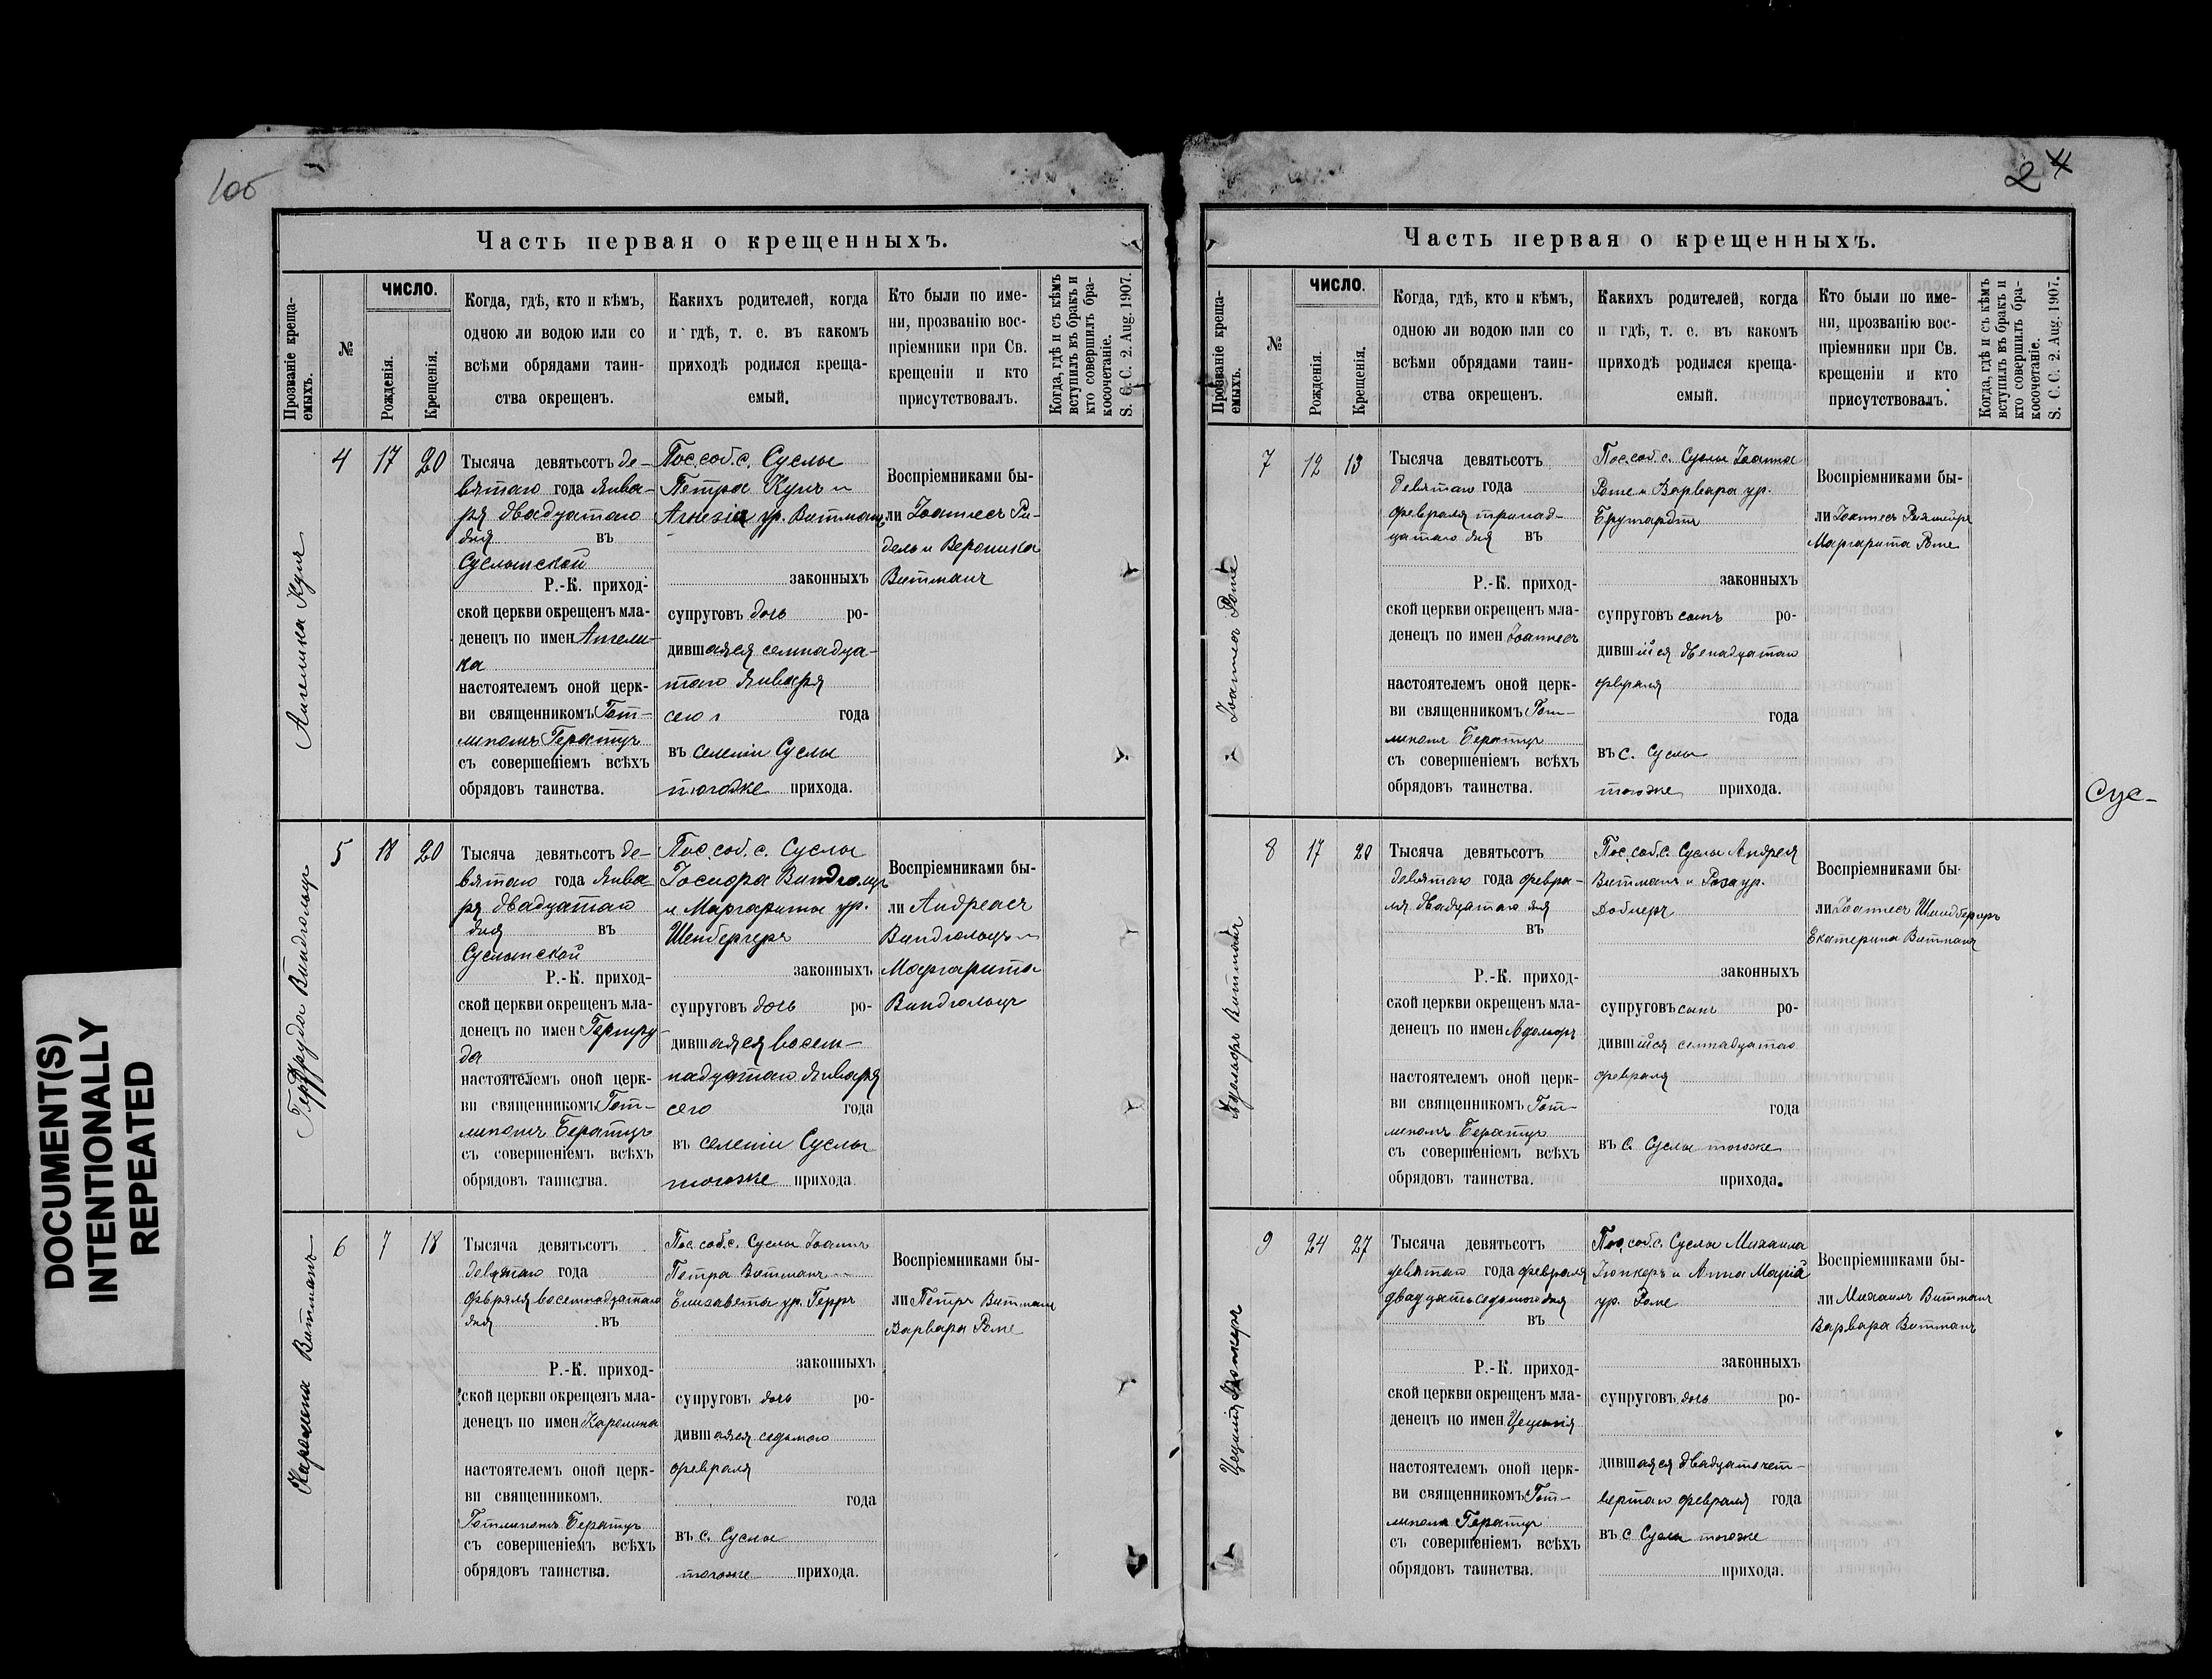 100
2 4
DOCUMENT(S)
INTENTIONALLY
REPEATED
Часть первая о крещенныхъ.
Прозваніе креща-
емыхъ.
№
ЧИСЛО.
Рожденія.
Крещенія.
Когда, гдѣ, кто и кѣмъ,
одною ли водою или со
всѣми обрядами таин-
ства окрещенъ.
Какихъ родителей, когда
и гдѣ, т. е. въ какомъ
приходѣ родился креща-
емый.
Кто были по име-
ни, прозванію вос-
пріемники при Св.
крещеніи и кто
присутствовалъ.
Когда, гдѣ и съ кѣмъ
вступилъ въ бракъ и
кто совершилъ бра-
косочетаніе.
S. C. C. 2. Aug. 1907.
Ангелика Кунъ
4 17 20
Тысяча девятьсотъ де-
вятаго года Янва-
ря двадцатаго
дня въ
Суслынской
Р.-К. приход-
ской церкви окрещенъ мла-
денецъ по имен Ангели-
ка
настоятелемъ оной церк-
ви священникомъ Гот-
либомъ Бератцъ
съ совершеніемъ всѣхъ
обрядовъ таинства.
Пос. соб. с. Суслы
Петра Кунъ и
Агнезіа ур. Витманъ
законныхъ
супруговъ дочь ро-
дившаяся семнадца-
таго Января
сего г. года
въ селеніи Суслы
тогоже прихода.
Воспріемниками бы-
ли Іоаннесъ Ри-
дель и Вероника
Витманъ
Гертруда Виндгольцъ
5 18 20
Тысяча девятьсотъ де-
вятаго года Янва
ря двадцатаго
дня въ
Суслынской
Р.-К. приход-
ской церкви окрещенъ мла-
денецъ по имен Гертру-
да
настоятелемъ оной церк-
ви священникомъ Гот-
либомъ Бератцъ
съ совершеніемъ всѣхъ
обрядовъ таинства.
Пос. соб. с. Суслы
Іосифа Виндгольцъ
и Маргариты ур.
Шенбергеръ
законныхъ
супруговъ дочь ро-
дившаяся восем-
надцатаго Января
сего года
въ селеніи Суслы
тогоже прихода
Воспріемниками бы-
ли Андреасъ
Виндгольцъ и
Маргарита
Виндгольцъ
Каролина Витманъ
6 7 18
Тысяча девятьсотъ
девятаго года
февраля восемнадцатаго
дня въ
Р.-К. приход-
ской церкви окрещенъ мла-
денецъ по имен Каролина
настоятелемъ оной церк-
ви священникомъ
Готлибомъ Бератцъ
съ совершеніемъ всѣхъ
обрядовъ таинства.
Пос. соб. с. Суслы Іоаннъ
Петра Витманъ и
Елизаветы ур. Герръ
законныхъ
супруговъ дочь ро-
дившаяся седьмого
февраля
года
въ с. Суслы
тогоже прихода.
Воспріемниками бы-
ли Петръ Витманъ
Варвара Роме
Часть первая о крещенныхъ.
Прозваніе креща-
емыхъ.
№
ЧИСЛО.
Рожденія.
Крещенія.
Когда, гдѣ, кто и кѣмъ,
одною ли водою или со
всѣми обрядами таин-
ства окрещенъ.
Какихъ родителей, когда
и гдѣ, т. е. въ какомъ
приходѣ родился креща-
емый.
Кто были по име-
ни, прозванію вос-
пріемники при Св.
крещеніи и кто
присутствовалъ.
Когда, гдѣ и съ кѣмъ
вступилъ въ бракъ и
кто совершилъ бра-
косочетаніе.
S. C. C. 2. Aug. 1907.
Іоаннесъ Роме
7 12 13
Тысяча девятьсотъ
девятаго года
февраля тринад-
цатаго дня въ
Р.-К. приход-
ской церкви окрещенъ мла-
денецъ по имен Іоаннесъ
настоятелемъ оной церк-
ви священникомъ Гот-
либомъ Бератцъ
съ совершеніемъ всѣхъ
обрядовъ таинства.
Пос. соб. с. Суслы Іоанна
Роме и Варвара ур.
Брунгардтъ
законныхъ
супруговъ сынъ ро-
дившійся двенадцатаго
февраля
года
въ с. Суслы
тогоже прихода.
Воспріемниками бы-
ли Іоаннесъ
Маргарита Роме
Адольфъ Витманъ
8 17 20
Тысяча девятьсотъ
девятаго года февра-
ля двадцатаго дня
въ
Р.-К. приход-
ской церкви окрещенъ мла-
денецъ по имен Адольфъ
настоятелемъ оной церк-
ви священникомъ Гот-
либомъ Бератцъ
съ совершеніемъ всѣхъ
обрядовъ таинства.
Пос. соб. с. Суслы Андрея
Витманъ и Роза ур.
Добнеръ
законныхъ
супруговъ сынъ ро-
дившійся семнадцатаго
февраля
года
въ с. Суслы тогоже
прихода.
Воспріемниками бы-
ли Іоаннесъ
Екатерина Витманъ
Цецилія Юнкеръ
9 24 27
Тысяча девятьсотъ
девятаго года февраля
двадцать седьмого дня
въ
Р.-К. приход-
ской церкви окрещенъ мла-
денецъ по имен Цецилія
настоятелемъ оной церк-
ви священникомъ Гот-
либомъ Бератцъ
съ совершеніемъ всѣхъ
обрядовъ таинства.
Пос. соб. с. Суслы Михаила
Юнкеръ и Анна Марія
ур. Роме
законныхъ
супруговъ дочь ро-
дившаяся двадцать чет-
вертаго февраля года
въ с Суслы тогоже
прихода.
Воспріемниками бы-
ли Михаилъ Витманъ
Варвара Витманъ
Сус-